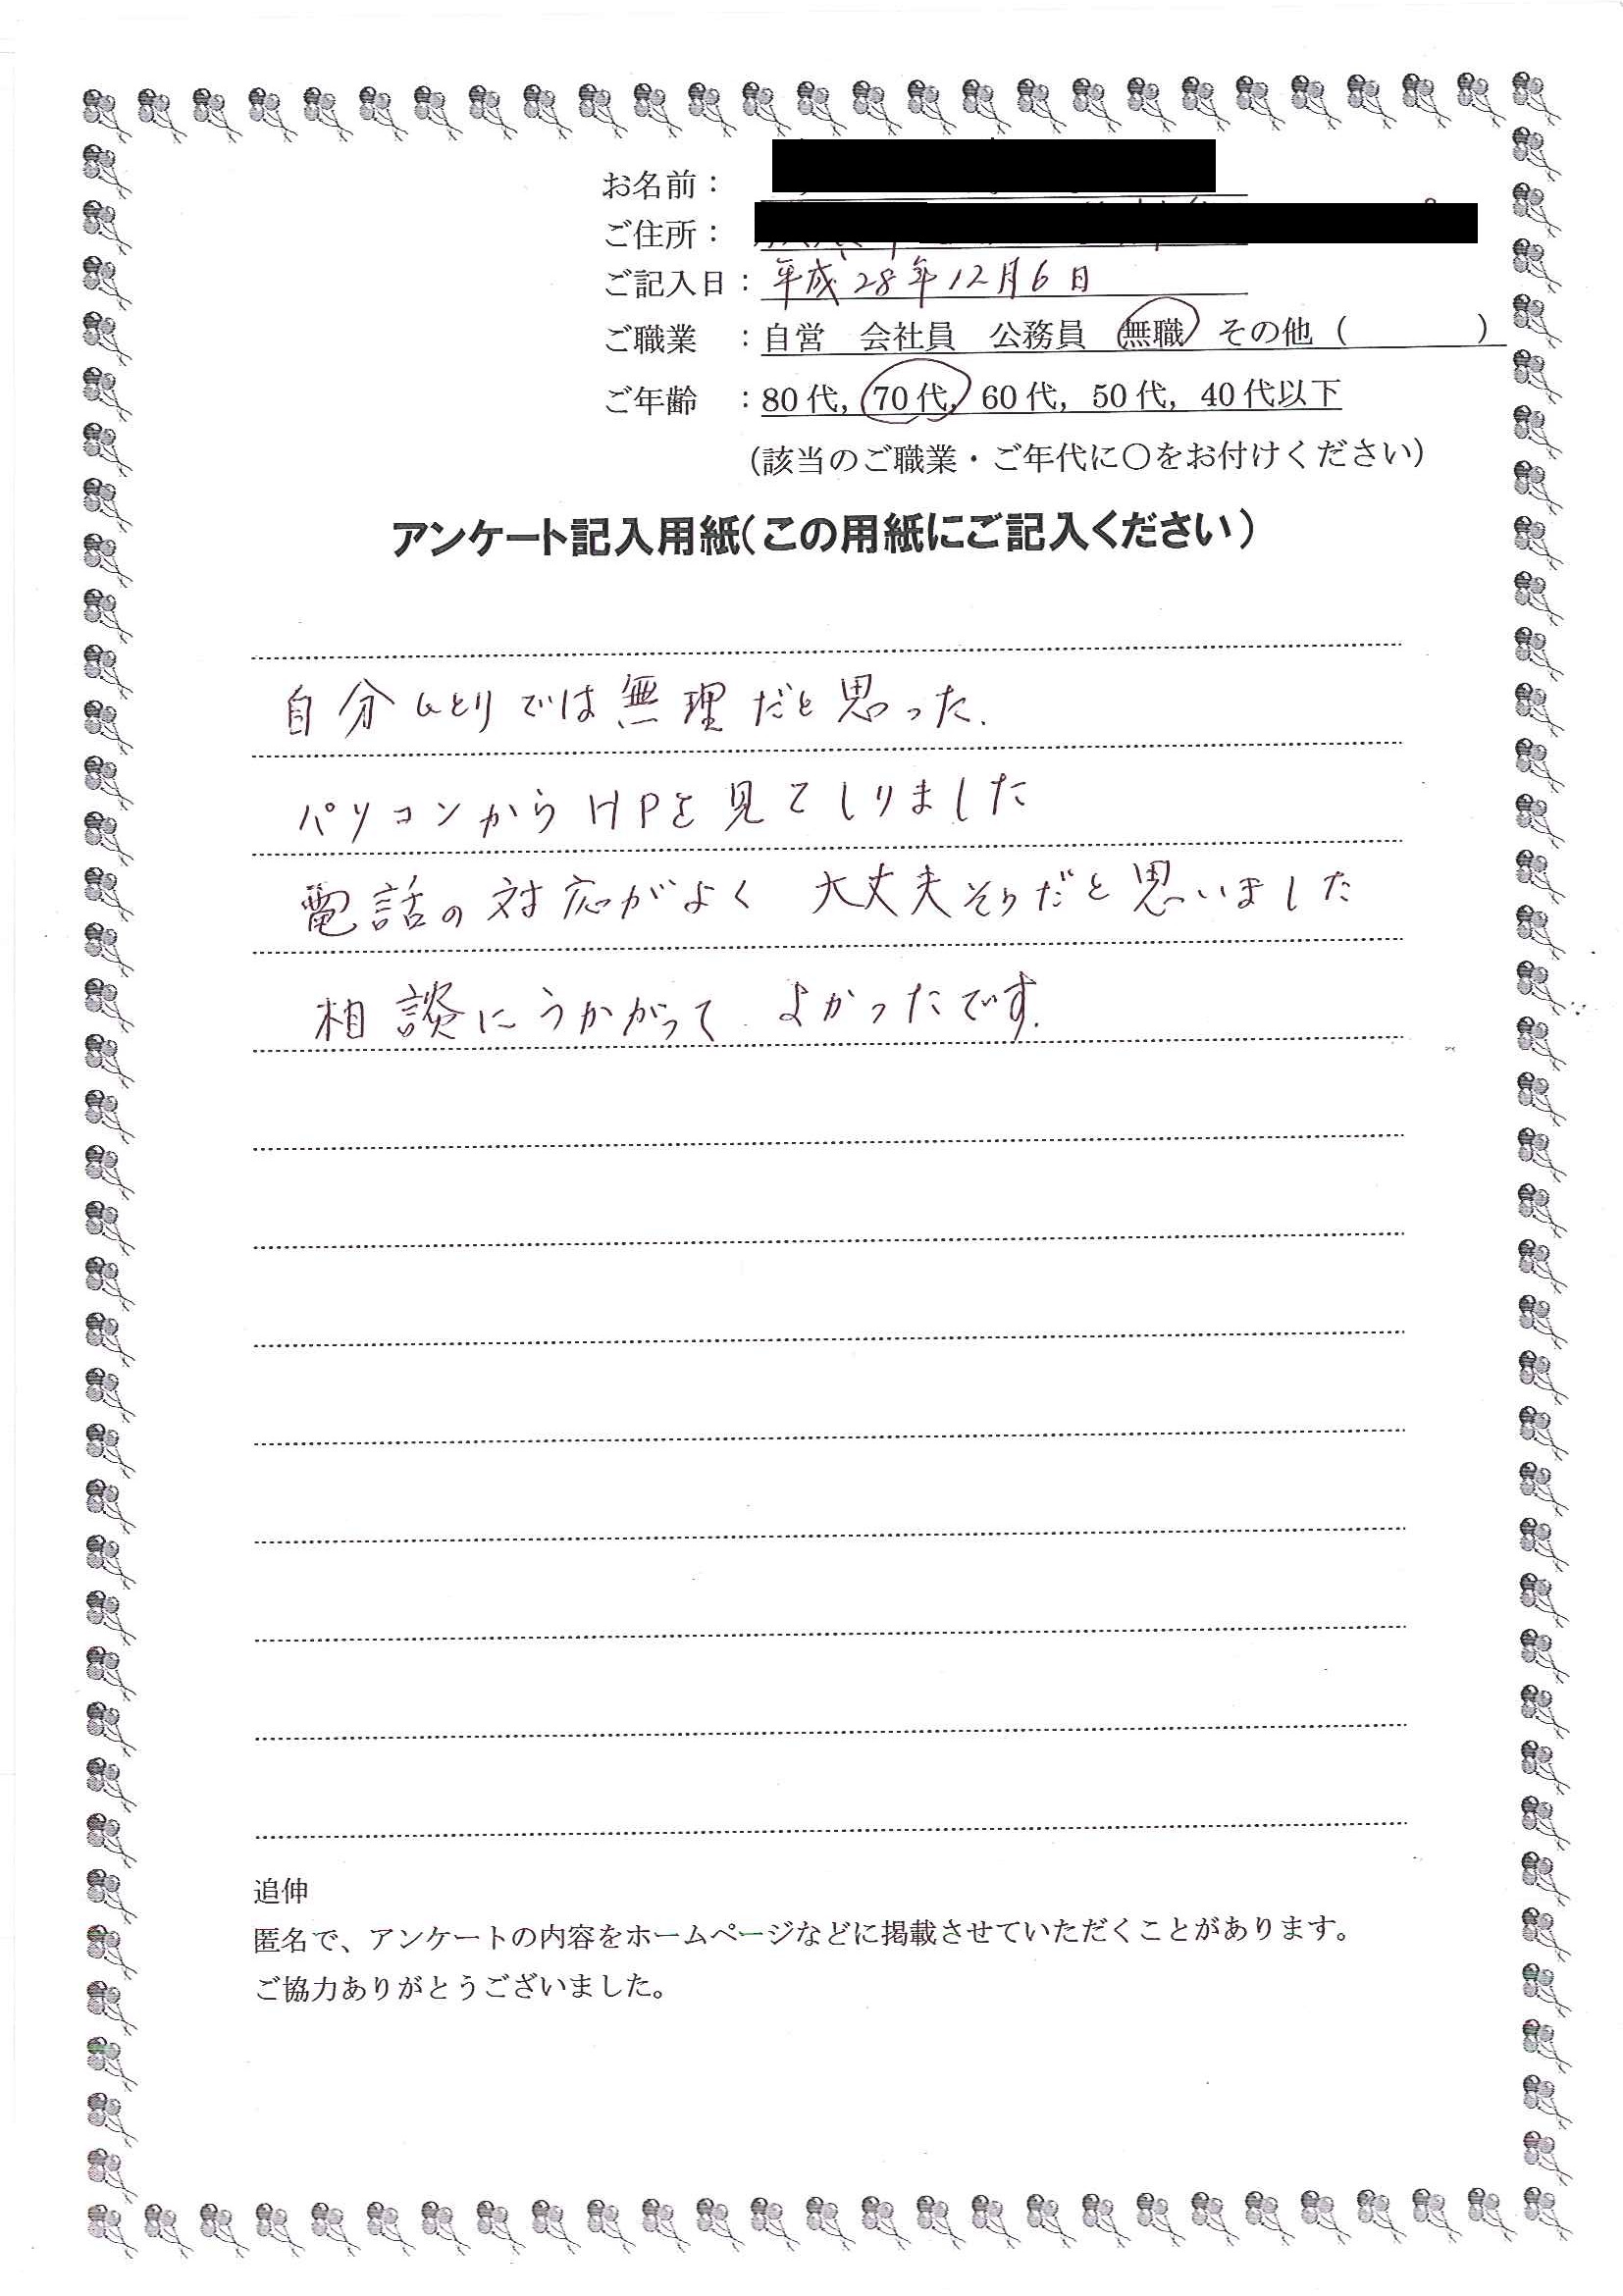 お名前：
ご住所：
ご記入日：平成28年12月6日
ご職業　：自営　会社員　公務員　無職　その他（　　　　）
ご年齢　：80代，70代，60代，50代，40代以下
（該当のご職業・ご年代に〇をお付けください）
アンケート記入用紙（この用紙にご記入ください）
自分ひとりでは無理だと思った．
パソコンからHPを見てしりました
電話の対応がよく　大丈夫そうだと思いました
相談にうかがって　よかったです．
追伸
匿名で、アンケートの内容をホームページなどに掲載させていただくことがあります。
ご協力ありがとうございました。